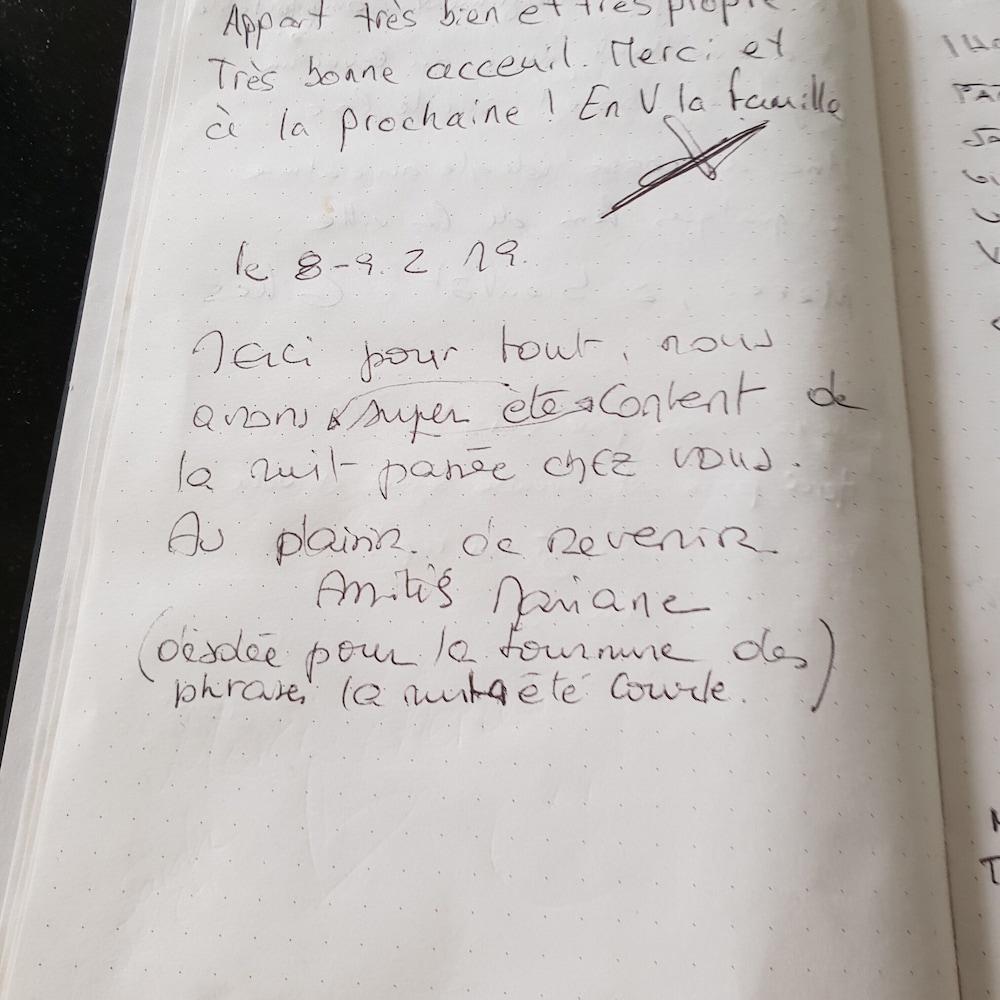 Appart très bien et très propre.
Très bonne acceuil. Merci et
à la prochaine ! En V la famille
le 8-9. 2 19.
Merci pour tout, nous
avons super été content de
la nuit passée chez vous.
Au plaisir de revenir
Amitiés Mariane
(désolée pour la tournure des)
phrases, la nuit a été courte.